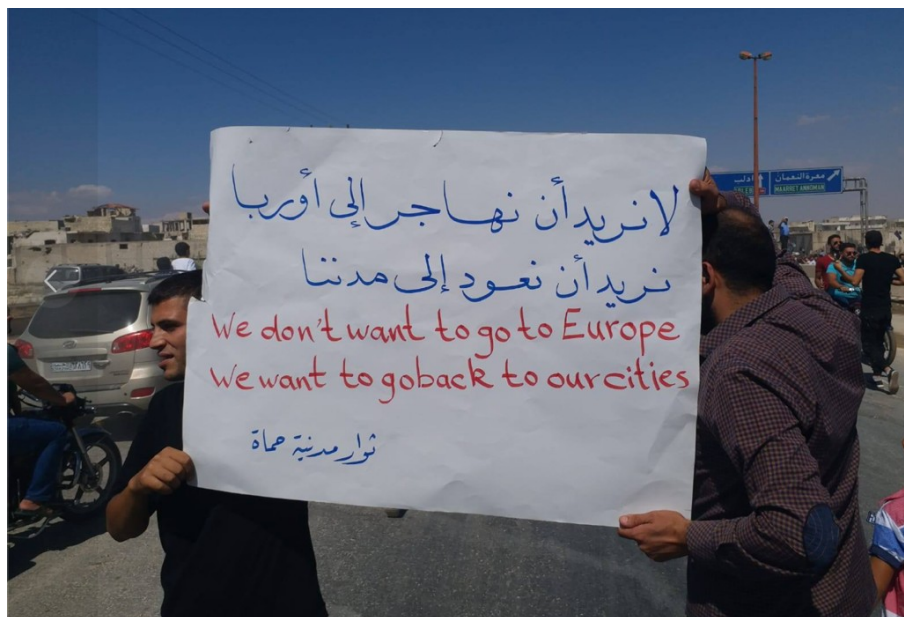 لا نريد أن نهاجر إلى أوربا
نريد أن نعود إلى مدننا
We don't want to go to Europe
We want to goback to our cities
ثوار مدنية حماة
ادلب
معرة النعمان
MAARRET ANNOMAN